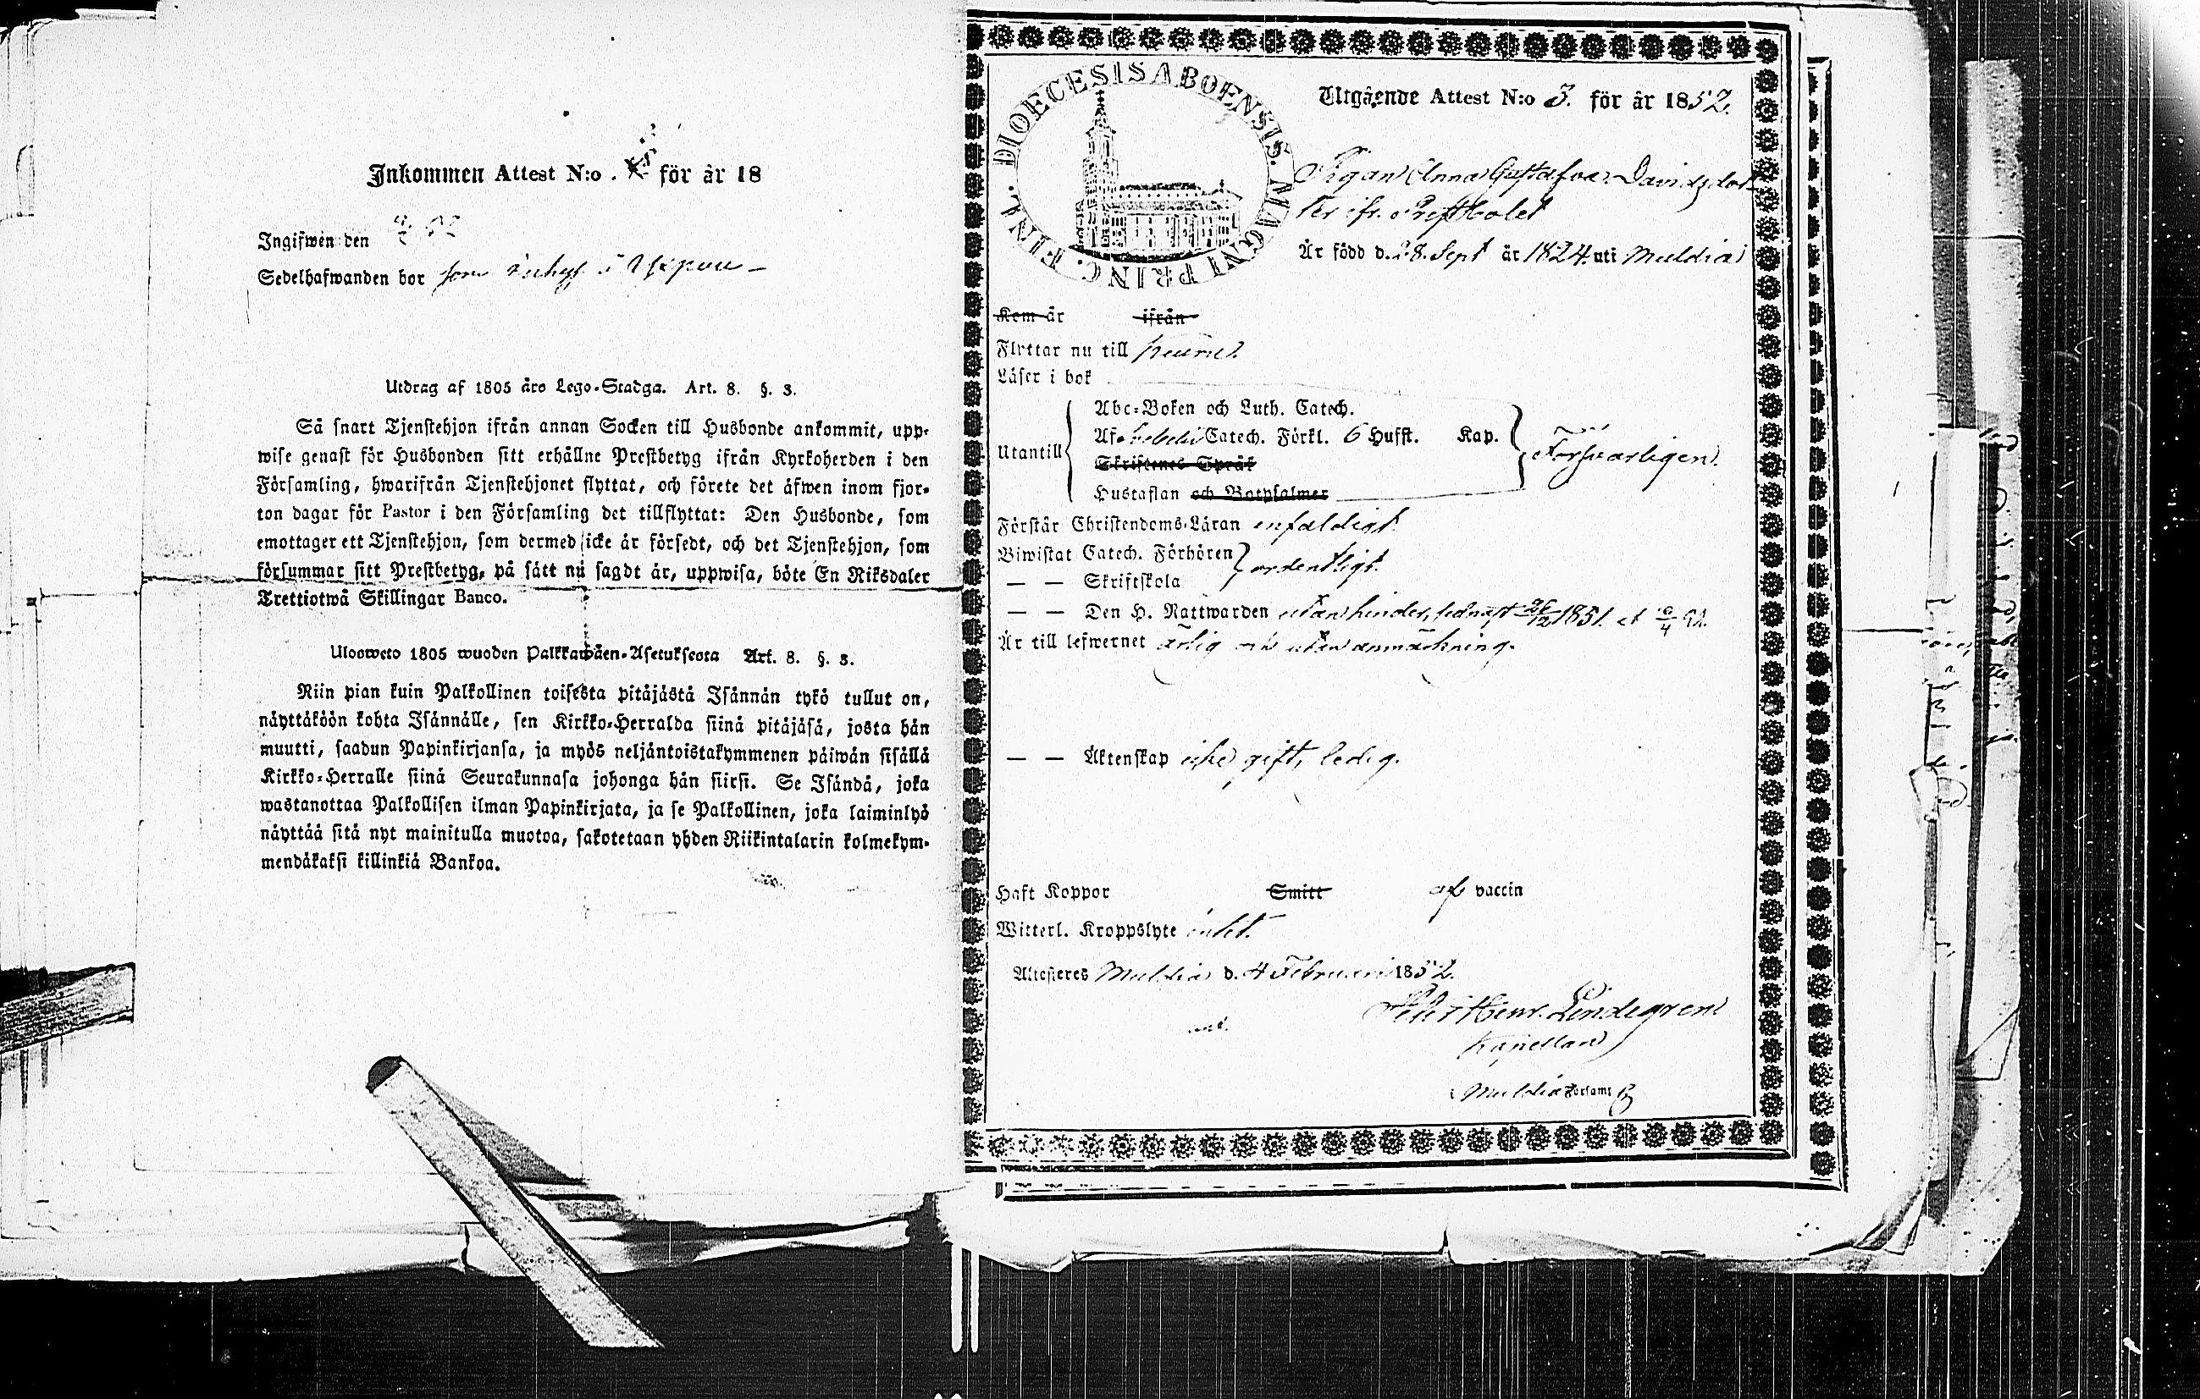 Inkommen Attest N:o för år 18
Ingifwen den
Sedelhafwanden bor som inhys i
Utdrag af 1805 års Lego-Stadga. Art. 8. §. 3.
Så snart Tjenstehjon ifrån annan Socken till Husbonde ankommit, upp-
wise genast för Husbonden sitt erhållne Prestbetyg ifrån Kyrkoherden i den
Församling, hwarifrån Tjenstehjonet flyttat, och förete det äfwen inom fjor-
ton dagar för Pastor i den Församling det tillflyttat: Den Husbonde, som
emottager ett Tjenstehjon, som dermed icke är försedt, och det Tjenstehjon, som
försummar sitt Prestbetyg, på sätt nu sagdt är, uppwisa, böte En Riksdaler
Trettiotwå Skillingar Banco.
Ulosweto 1805 wuoden Palkkawäen-Asetuksesta Art. 8. §. 3.
Niin pian kuin Palkollinen toisesta pitäjästä Isännän tykö tullut on,
näyttäköön kohta Isännälle, sen Kirkko-Herralda siinä pitäjäsä, josta hän
muutti, saadun Papinkirjansa, ja myös neljäntoistakymmenen päiwän sisällä
Kirkko-Herralle siinä Seurakunnasa johonga hän siirsi. Se Isändä, joka
wastanottaa Palkollisen ilman Papinkirjata, ja se Palkollinen, joka laiminlyö
näyttää sitä nyt mainitulla muotoa, sakotetaan yhden Riikintalarin kolmekym-
mendäkaksi killinkiä Bankoa.
DIOECESIS ABOENSIS. MAGNI PRINC. FINL.
Utgående Attest N:o 3. för år 1852.
Pigan Anna Gustafva Davidsdot-
ter ifr. Prestbolet
Är född d. 28. Sept år 1824. uti Muldia
Kom är ifrån
Flyttar nu till
Läser i bok
Abc-Boken och Luth. Catech.
Af Catech. Förkl. 6 Hufst. Kap.
Utantill Försvarligen.
Skriftenes Språk
Hustaflan och Botpsalmer
Förstår Christendoms-Läran enfaldigt.
Biwistat Catech. Förhören
ordentligt.
— — Skriftskola
— — Den H. Nattwarden utan hinder, sednast 26/12 1851.
Är till lefwernet ärlig och utan anmärkning.
— — Äktenskap icke gift, ledig.
Haft Koppor Smitt af vaccin
Witterl. Kroppslyte intet.
Attesteres Muldia d. 4 Februari 1852.
Petr Henr. Lindegren
Kapellan
Muldia Församl